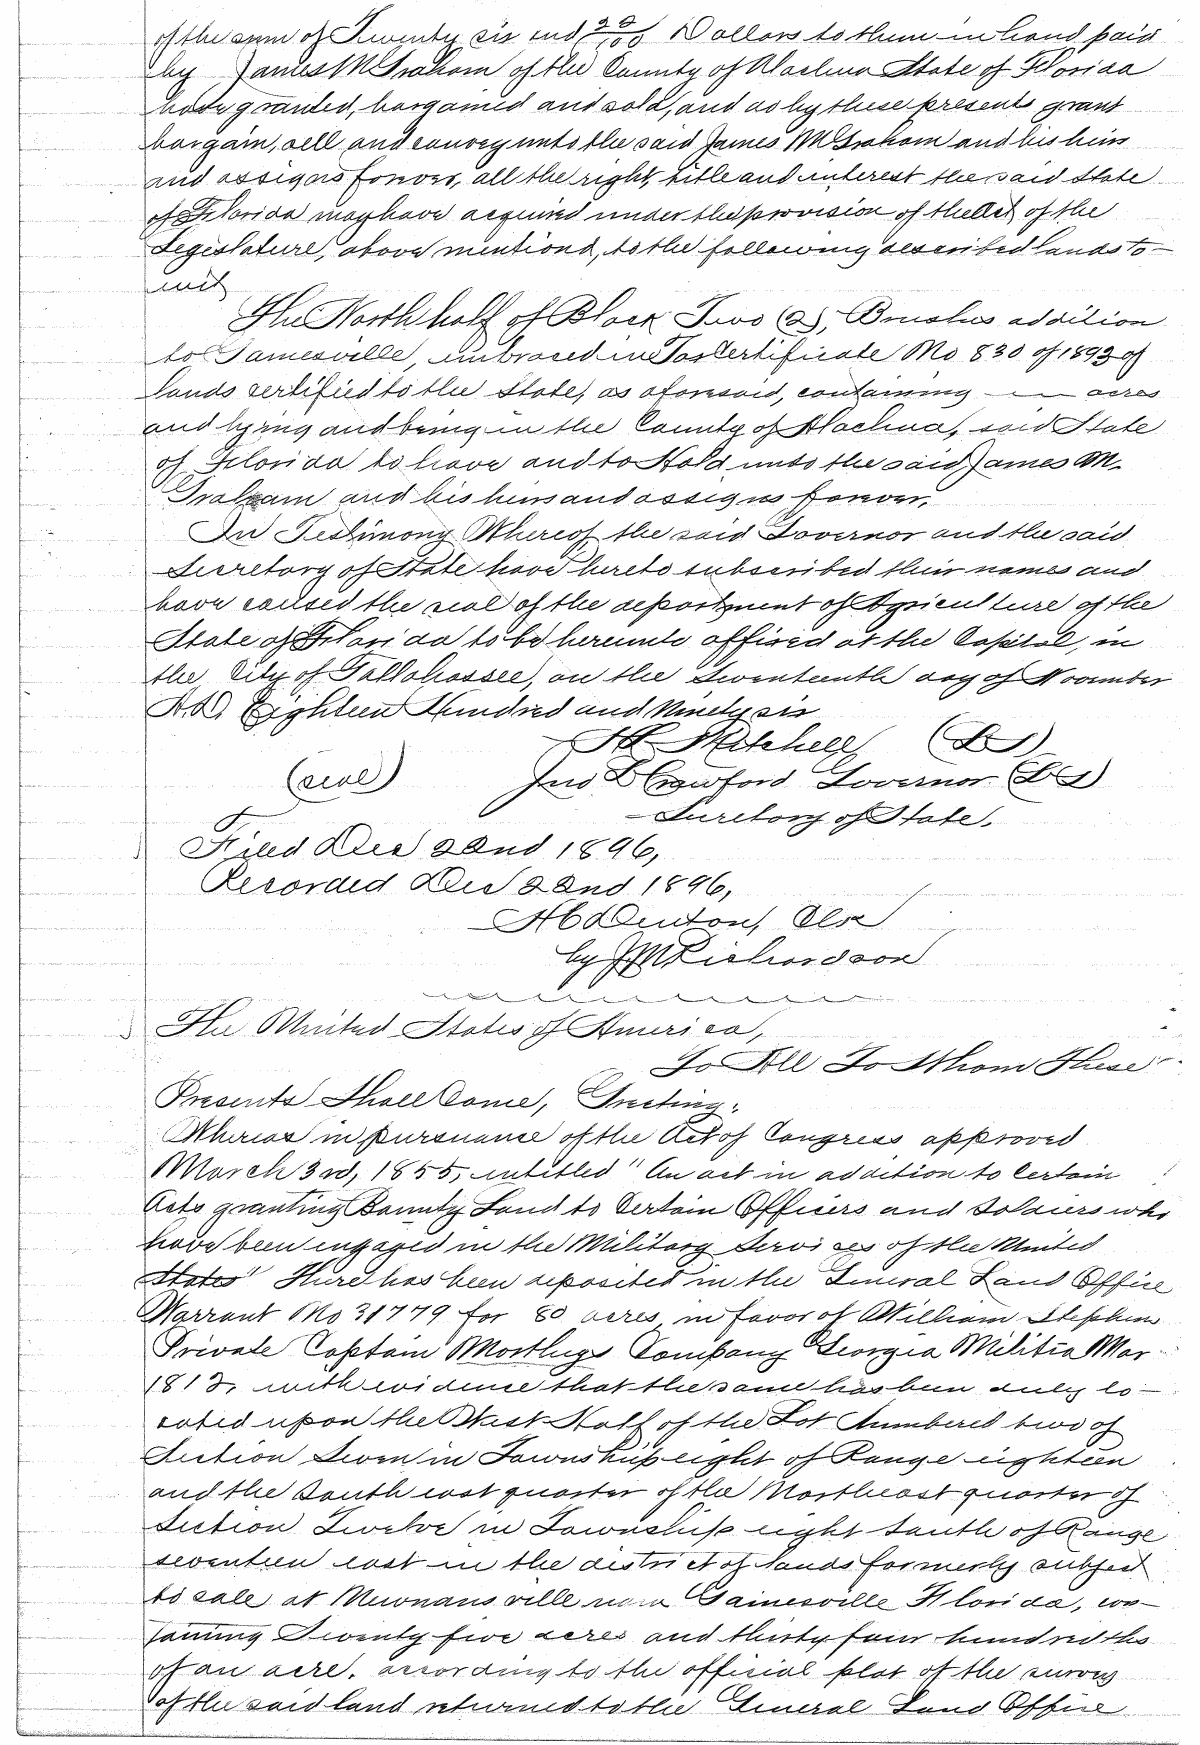 of the sum of Twenty six and 28/100 Dollars to them in hand paid
by James M Graham of the County of Alachua State of Florida
have granted, bargained and sold, and do by these presents grant
bargain, sell and convey unto the said James M Graham and his heirs
and assigns forever, all the right, title and interest the said State
of Florida may have acquired under the provision of the Act of the
Legislature, above mentiond, to the following described lands to-
wit
The North half of Block Two (2), Brushes addition
to Gainesville, embraced in Tax Certificate No 830 of 1893 of
lands certified to the State, as aforesaid, containing — acres
and lying and being in the County of Alachua, said State
of Florida to have and to Hold unto the said James M.
Graham and his heirs and assigns forever.
In Testimony Whereof the said Governor and the said
Secretary of State have hereto subscribed their names and
have caused the seal of the department of Agriculture of the
State of Florida to be hereunto affixed at the Capital, in
the City of Tallahassee, on the Seventeenth day of November
A.D. Eighteen Hundred and Ninety six
H L Mitchell (LS)
(seal) Jno L Crawford Governor (LS)
Secretary of State.
Filed Dec 22nd 1896,
Recorded Dec 22nd 1896,
H C Denton, Clk
by J M Richardson
The United States of America,
To All To Whom These
Presents Shall Come, Greeting:
Whereas in pursuance of the Act of Congress approved
March 3rd, 1855, entitled "An act in addition to Certain
Acts granting Bounty Land to Certain Officers and Soldiers who
have been engaged in the Military Services of the United
States" There has been deposited in the General Land Office
Warrant No 31779 for 80 acres in favor of William Stephens
Private Captain Company Georgia Militia War
1812, with evidence that the same has been duly lo-
cated upon the West Half of the Lot numbered two of
Section Seven in Township eight of Range eighteen
and the South east quarter of the Northeast quarter of
Section Twelve in Township eight South of Range
seventeen east in the district of lands formerly subject
to sale at Newnansville now Gainesville Florida, con-
taining Twenty five acres and thirty four hundredths
of an acre. according to the official plat of the survey
of the said land returned to the General Land Office